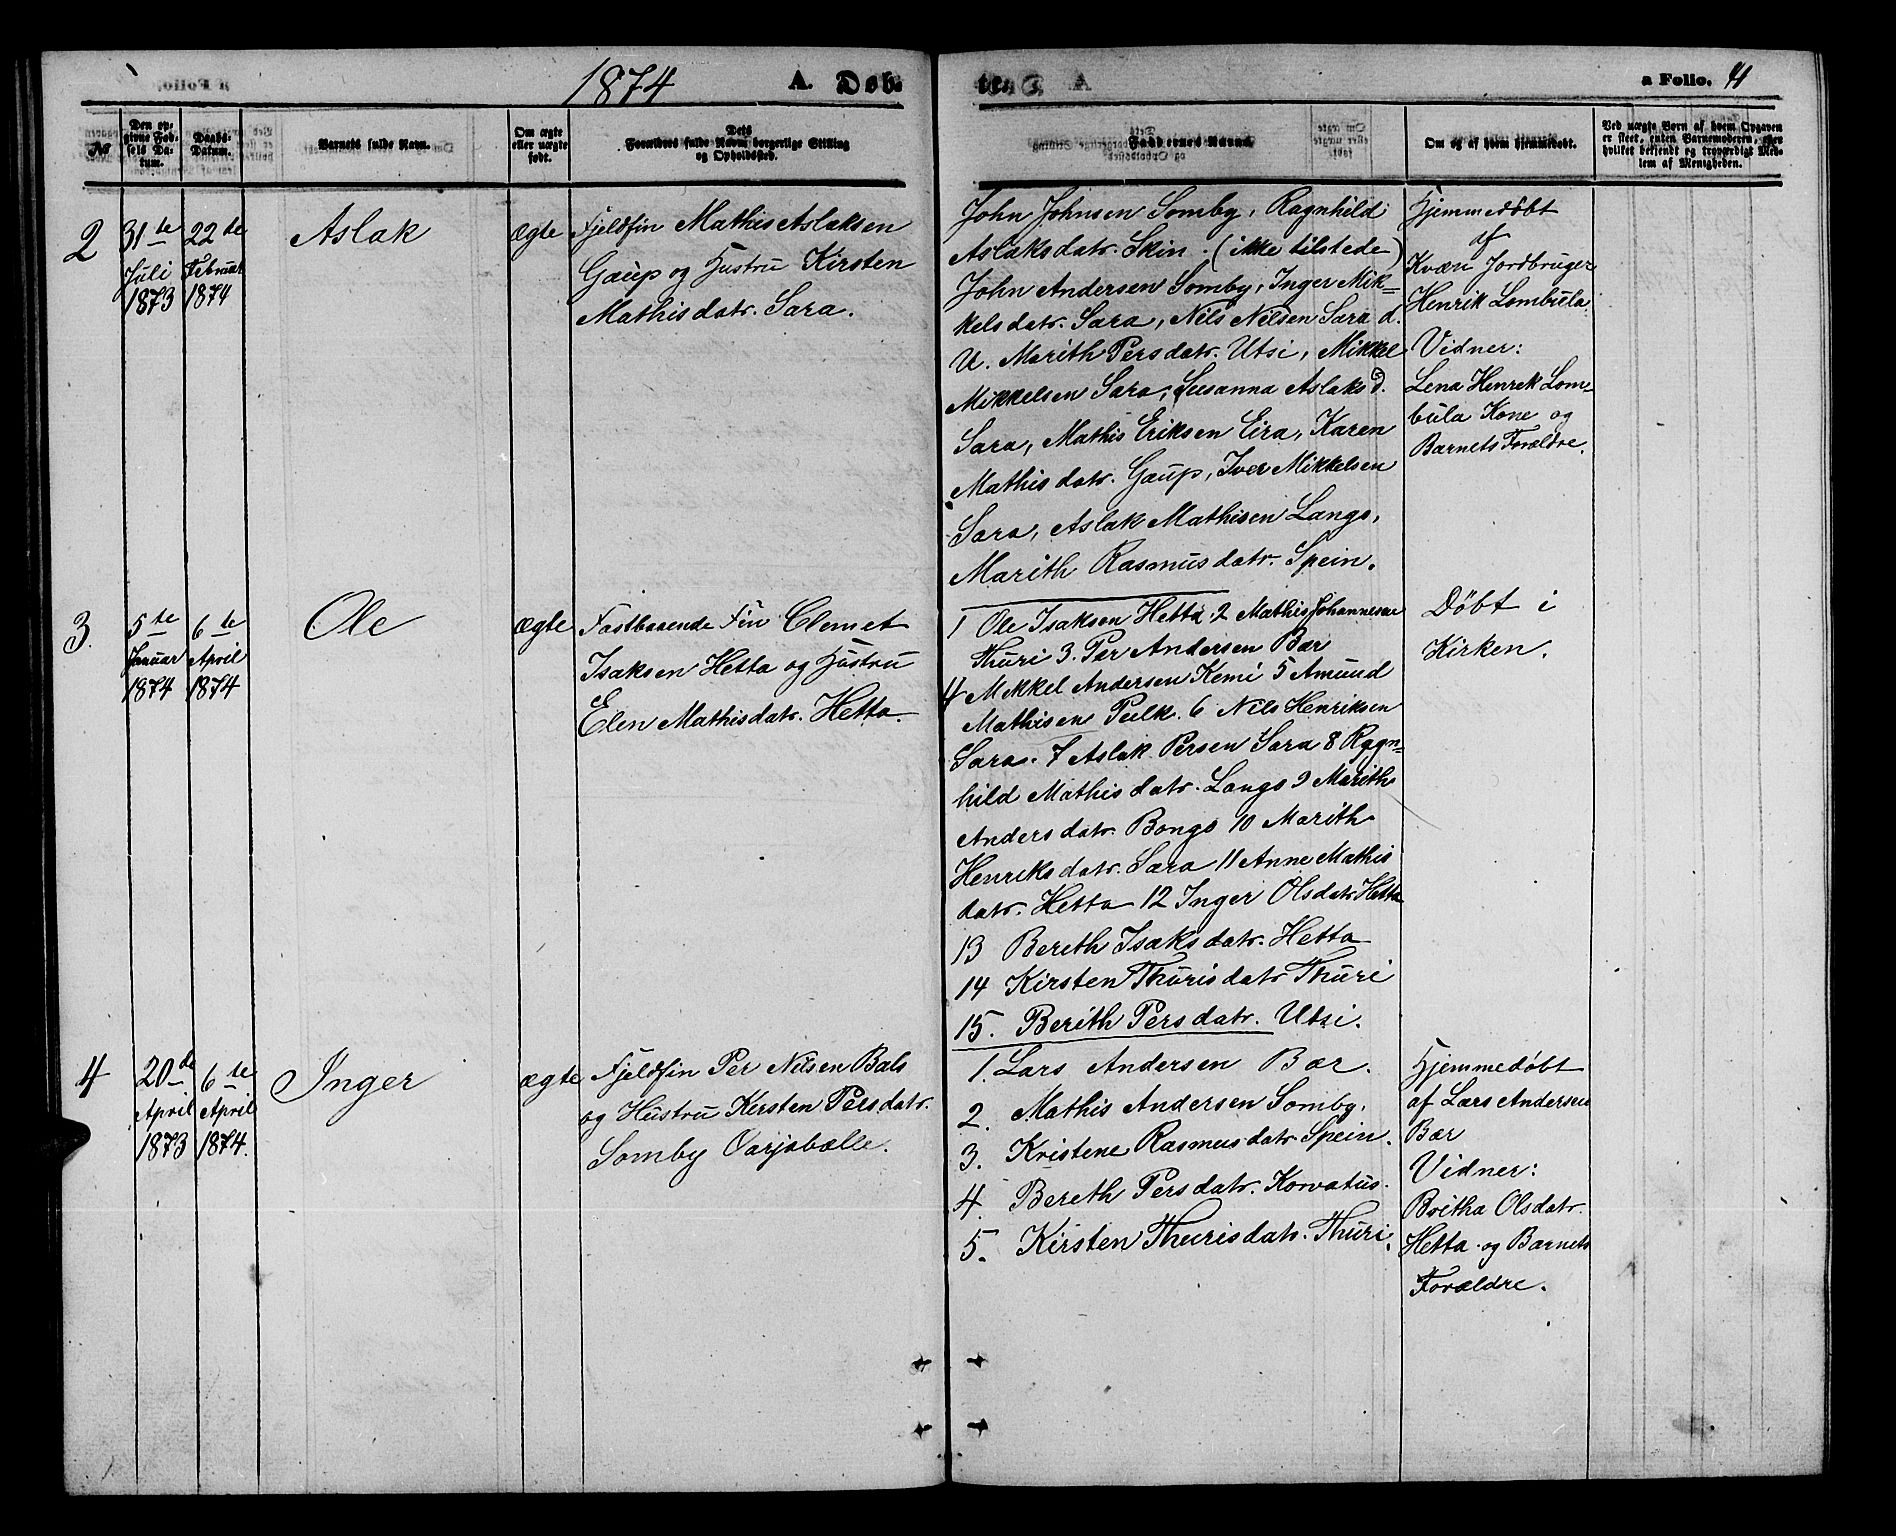 1874 A. Døb-
te. a Folio. 4
No
Den op-
givne Fød-
sels Da-
tum.
Daabs-
Datum.
Barnets fulde Navn.
Om ægte
eller uægte
født.
Dets
Forældres fulde Navn borgerlige Stilling
og Opholdssted.
Faddernes Navne
Om og af hvem hjemmedøbt.
Ved uægte Børn af hvem Opgaven
er skeet, enten Barnemoderen, eller
hvilket bekjendt og troværdigt Med-
lem af Menigheden.
2
31te
Juli
1873
22de
Februar
1874
Aslak
ægte
Fjeldfin Mathis Aslaksen
Gaup og Hustru Kirsten
Mathisdatr. Sara.
John Johnsen Somby, Ragnhild
Aslaksdatr. Skin. (ikke tilstede)
John Andersen Somby, Inger Mik=
kelsdatr. Sara, Nils Nilsen Sara d.
U. Marith Persdatr. Utsi, Mikkel
Mikkelsen Sara, Susanna Aslaksd.
Sara, Mathis Eriksen Eira, Karen
Mathisdatr. Gaup, Iver Mikkelsen
Sara, Aslak Mathisen Lango,
Marith Rasmusdatr. Spein.
Hjemmedøbt
af
Kvæn Jordbruger
Henrik Lombula.
Vidner:
Lena Henrek Lom=
bula Kone og
Barnets Forældre.
3.
5te
Januar
1874
6te
April
1874
Ole
ægte
Fastboende Fin Clemet
Isaksen Hetta og Hustru
Elen Mathisdatr. Hetta.
1 Ole Isaksen Hetta 2 Mathis Johannesen
Thuri 3. Per Andersen Bær
4 Mekkel Andersen Kemi 5 Amund
Mathisen Pulk. 6 Nils Henriksen
Sara. 7 Aslak Persen Sara 8 Ragn=
hild Mathisdatr. Lango 9 Marith
Andersdatr. Bongo 10 Marith
Henriksdatr. Sara 11 Anne Mathis
datr. Hetta 12 Inger Olsdatr Hetta
13 Bereth Isaksdatr. Hetta
14 Kirsten Thurisdatr Thuri
15. Berith Persdatr. Utsi.
Døbt i
Kirken.
4
20de
April
1873
6te
April
1874.
Inger
ægte
Fjeldfin Per Nilsen Bals
og Hustru Kersten Persdatr.
Somby Varjabælle.
1. Lars Andersen Bær.
2. Mathis Andersen Somby.
3. Kristene Rasmusdatr Spein.
4. Bereth Persdatr. Korvatus.
5. Kirsten Thurisdatr. Thuri.
Hjemmedøbt
af Lars Andersen
Bær
Vidner:
Britha Olsdatr.
Hetta og Barnets
Forældre.